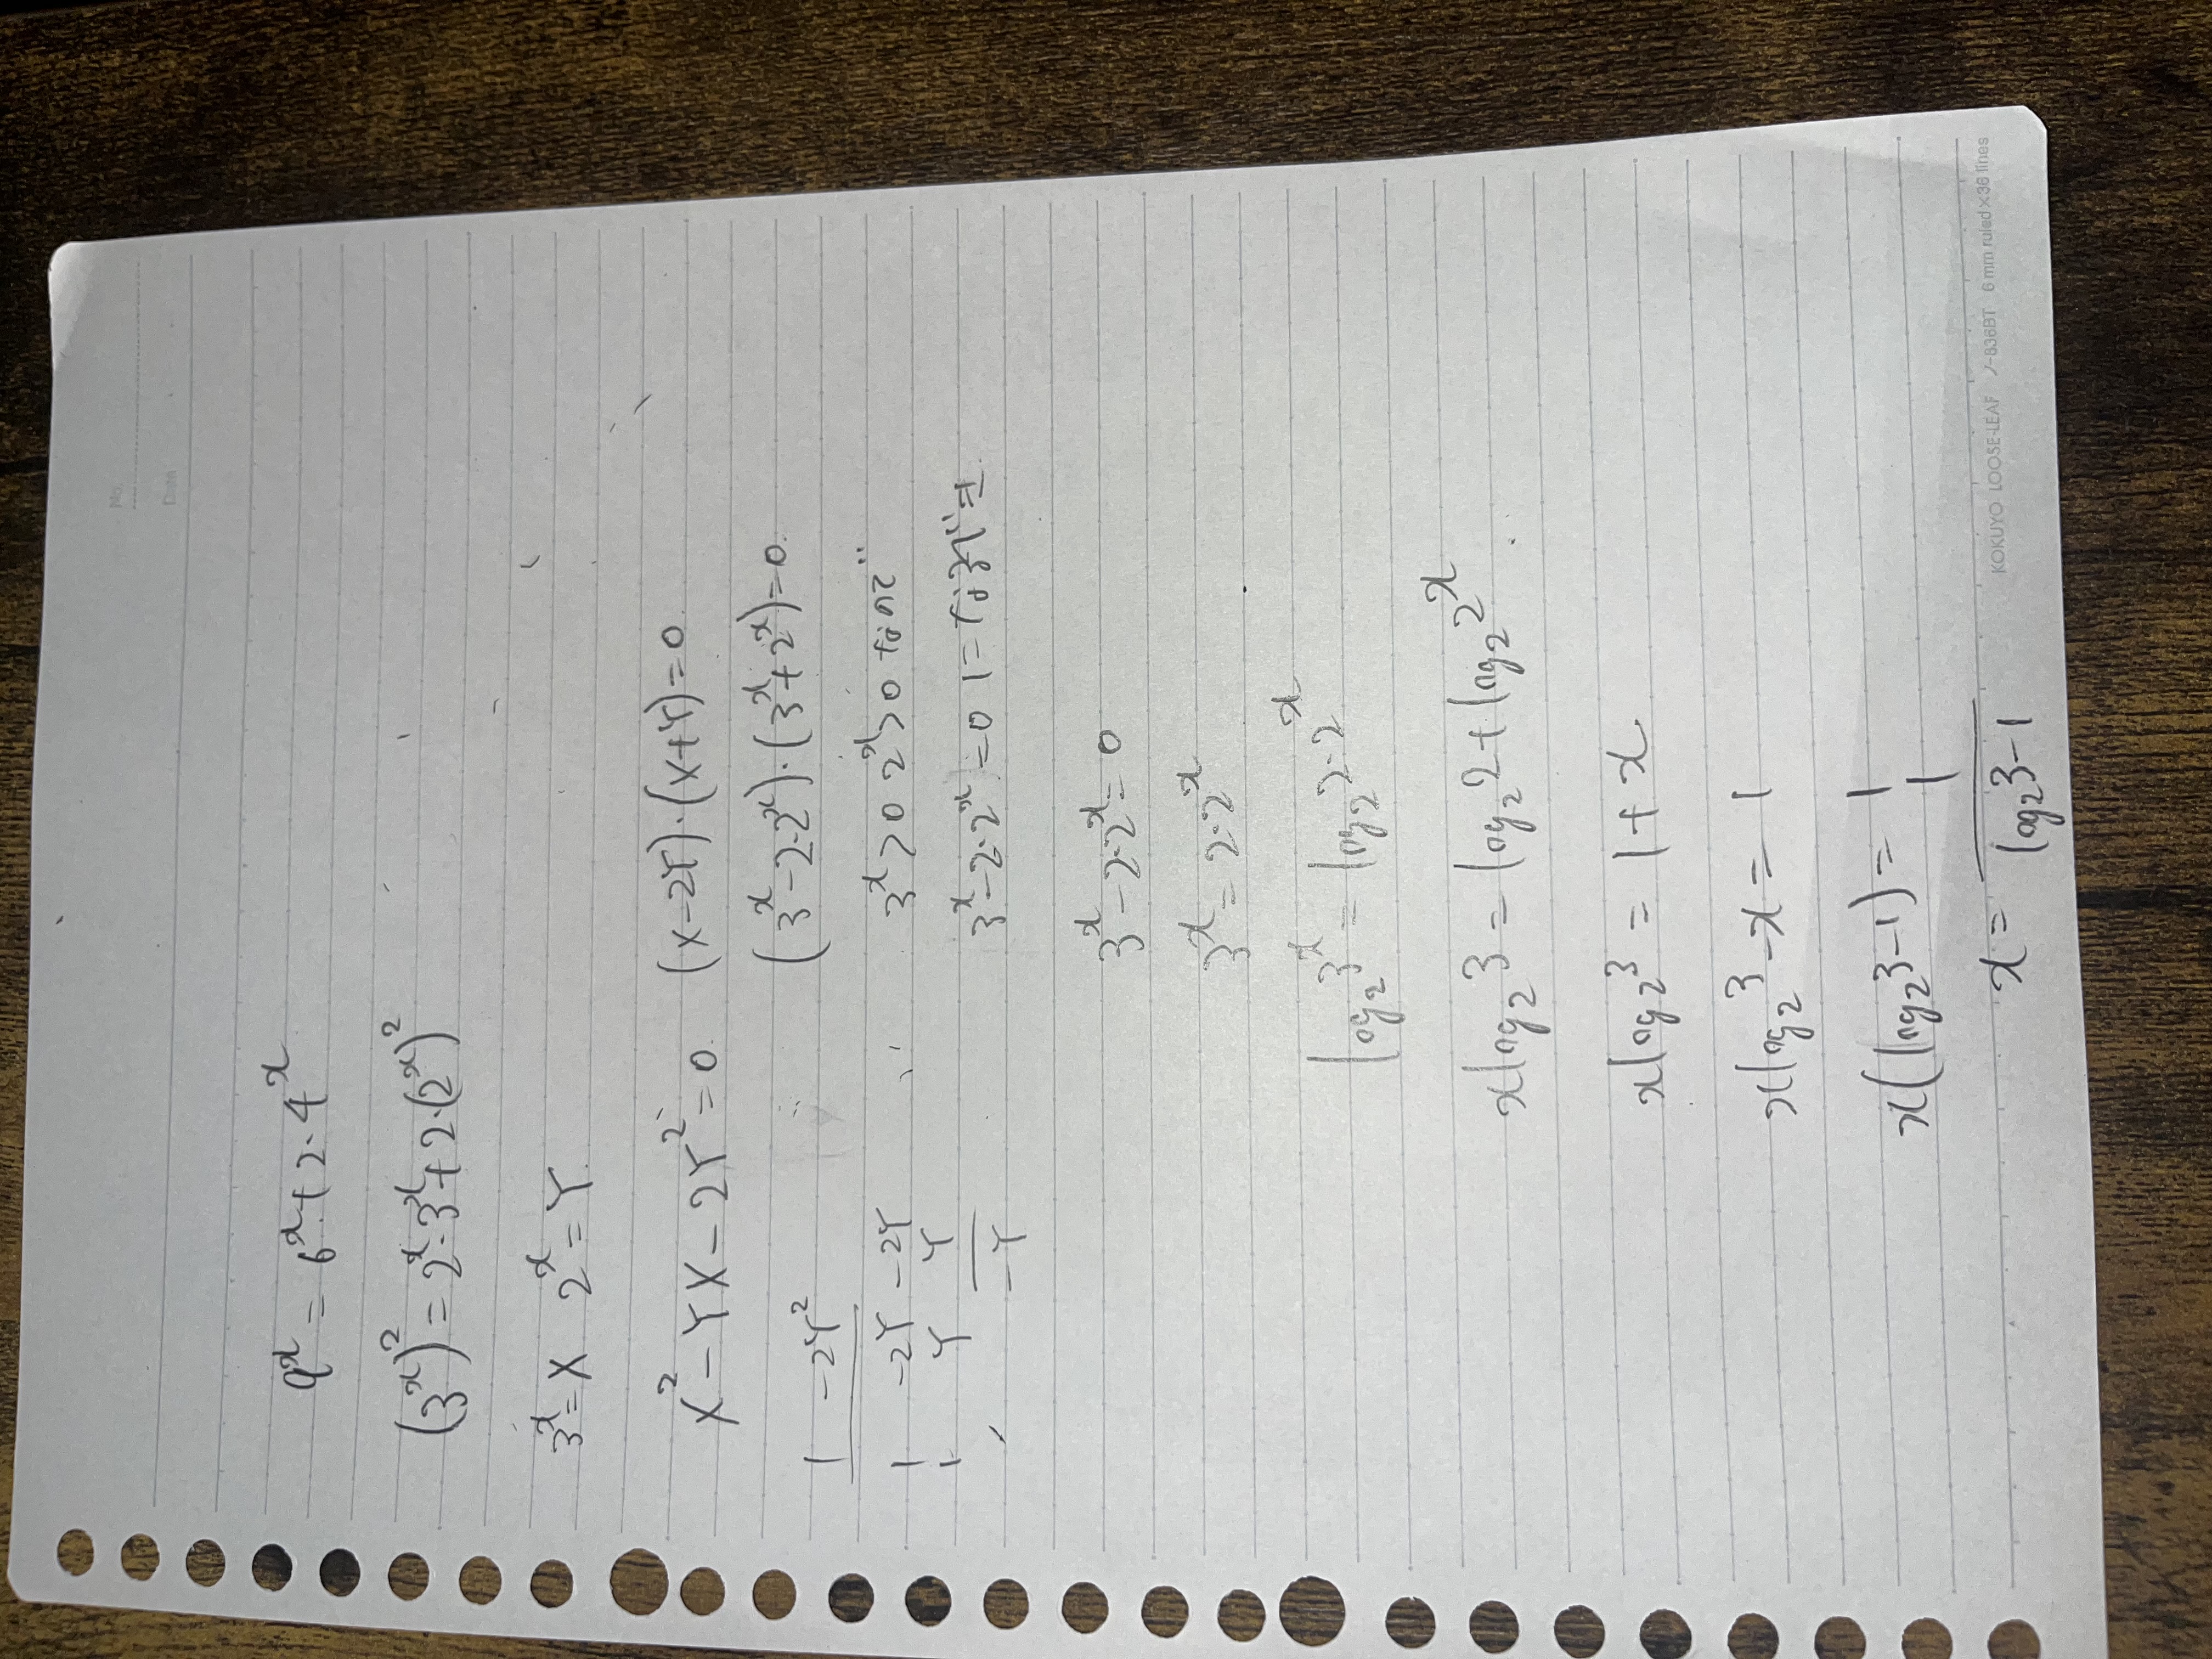 No.
Date
9^x = 6^x + 2・4^x
(3^x)^2 = 2^x・3^x + 2・(2^x)^2
3^x = X 2^x = Y
X^2 - YX - 2Y^2 = 0. (X-2Y)・(X+Y)=0.
1 -2Y^2 (3^x - 2・2^x)・(3^x + 2^x) = 0.
1 -2Y -2Y 3^x > 0 2^x > 0 なので
1 Y Y 3^x - 2・2^x = 0 になればよ
-Y
3^x - 2・2^x = 0
3^x = 2・2^x
log_2 3^x = log_2 2・2^x
x log_2 3 = log_2 2 + log_2 2^x
x log_2 3 = 1 + x
x log_2 3 - x = 1
x(log_2 3 - 1) = 1
x = 1/(log_2 3 - 1)
KOKUYO LOOSE-LEAF ノ-836BT 6 mm ruled×36 lines